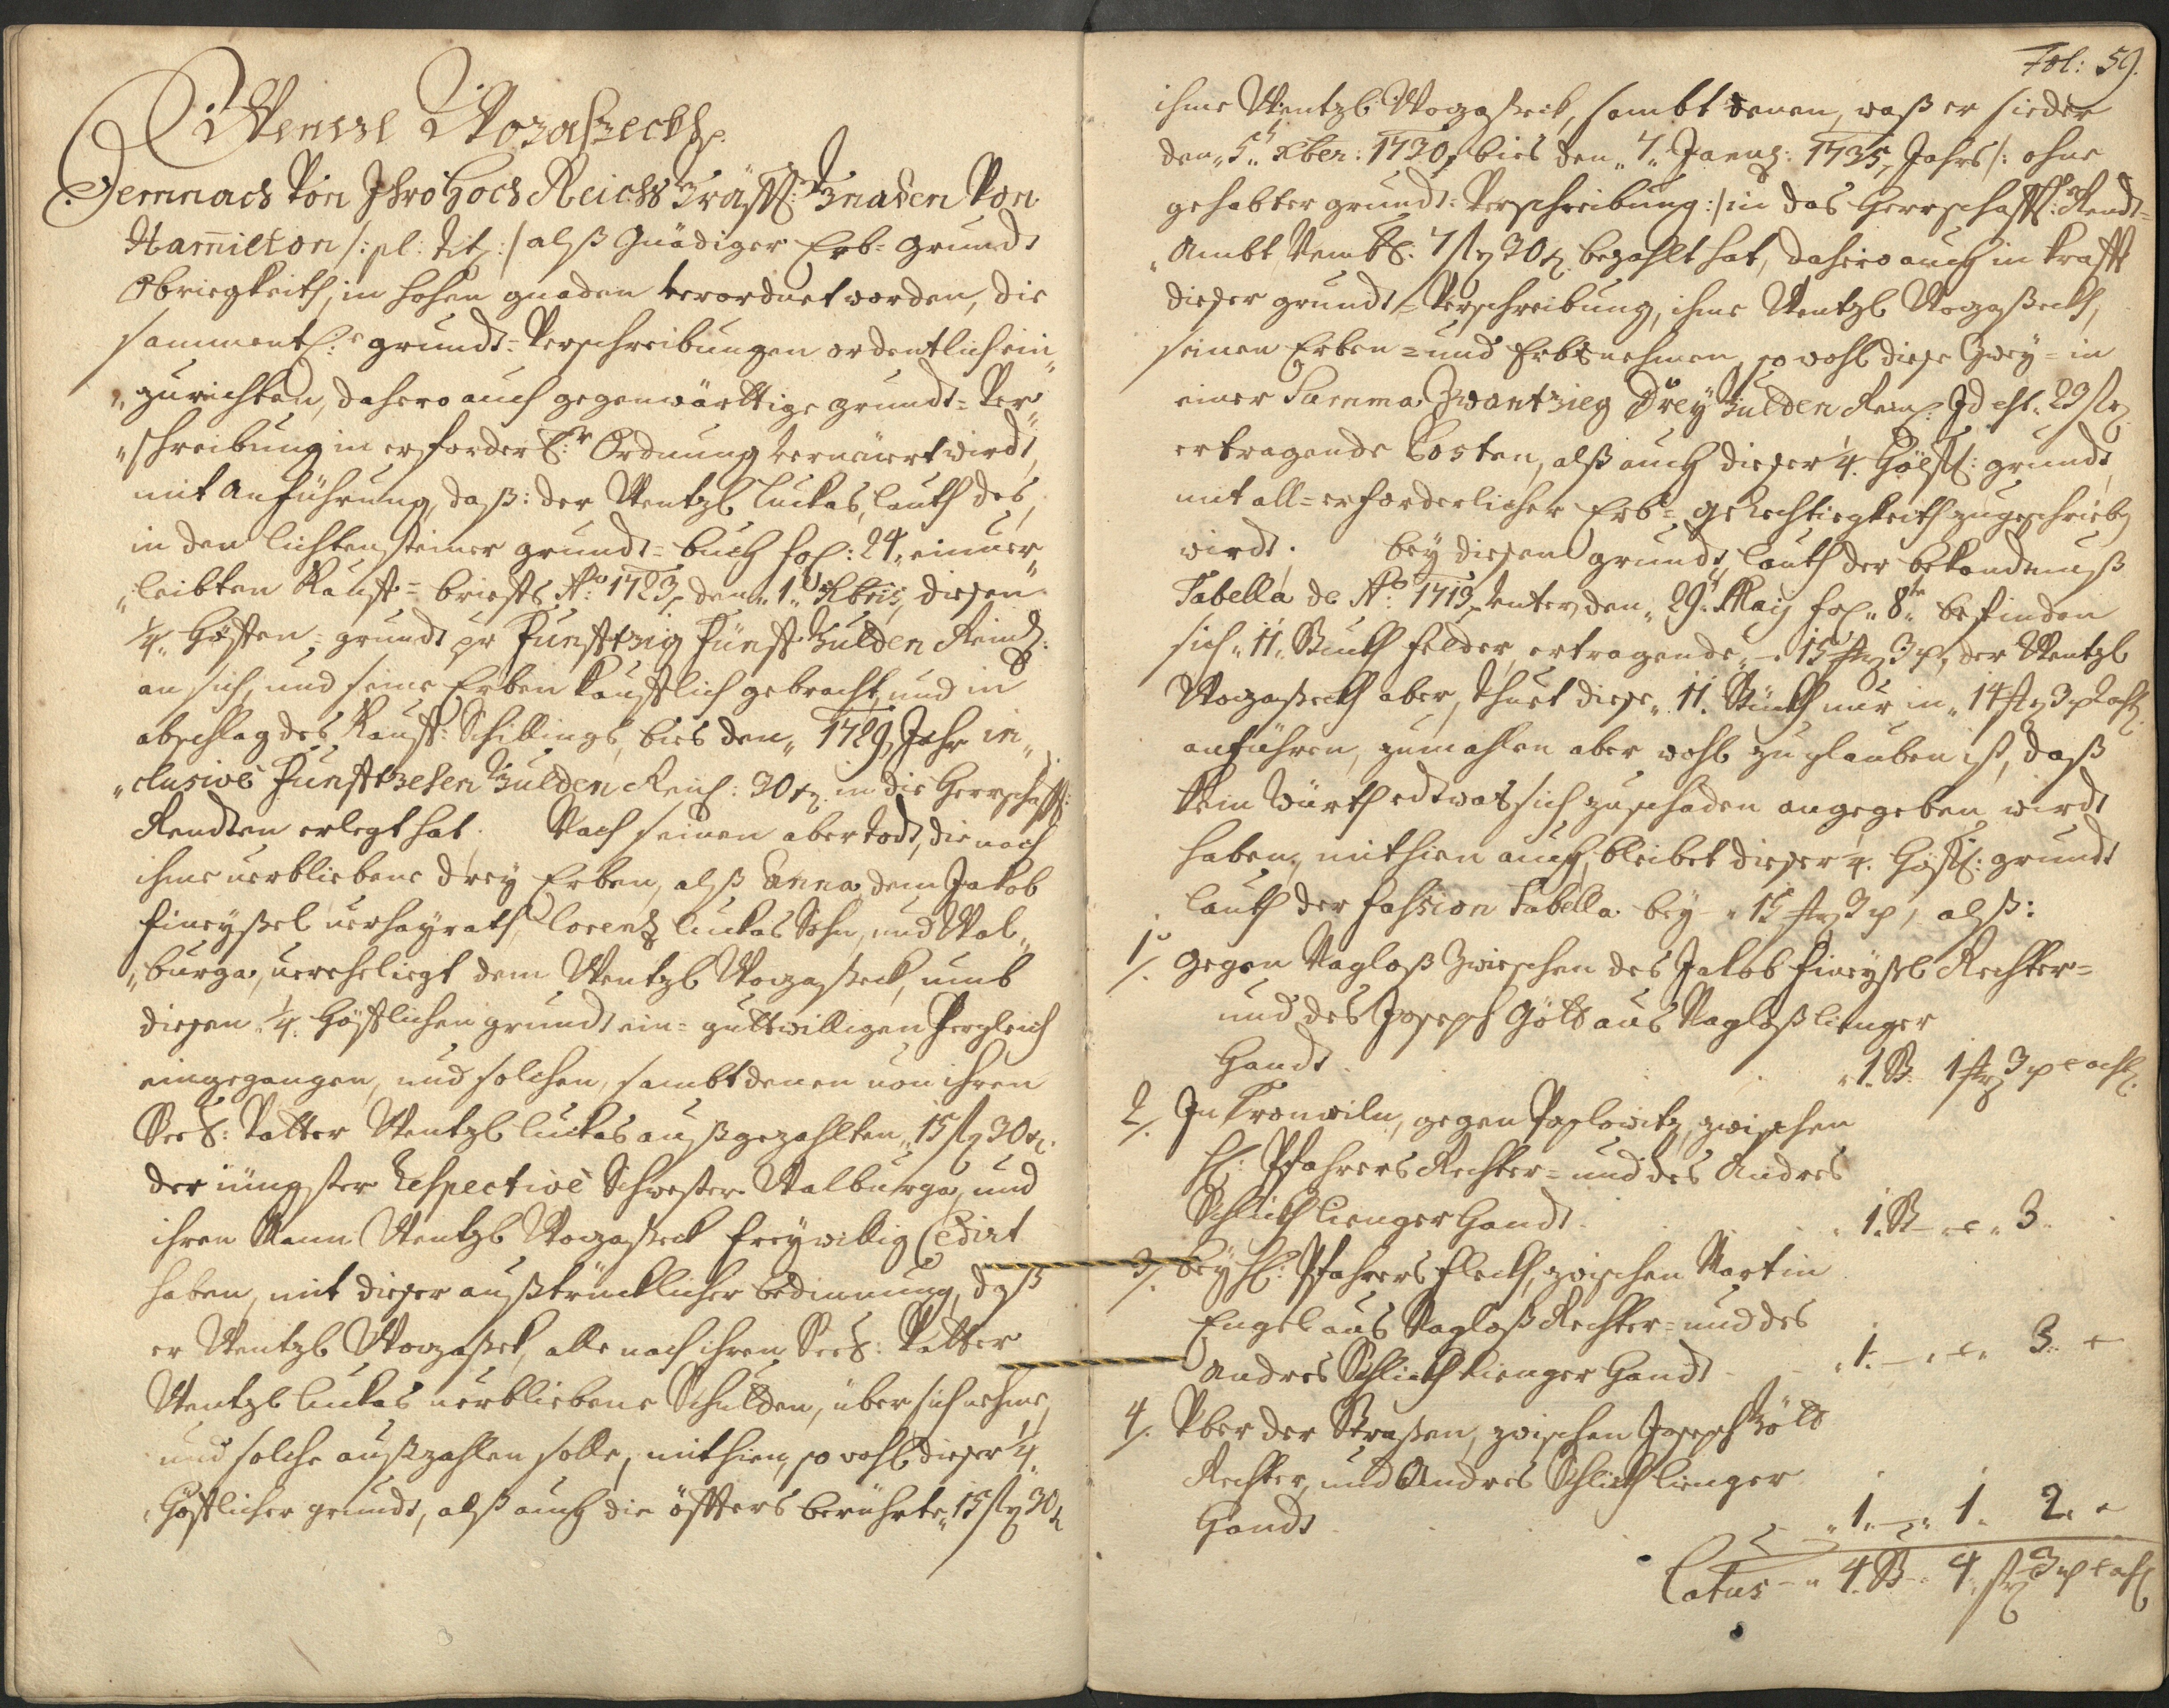 Wenzl Wozaßeckh.
Demnach Von Ihro Hoch Reichs Gräffl: Gnaden Von
Hamilton /: pl: tit: :/ alß Gnädiger Erb- Grundt
Obriegkeith, in hohen gnaden verordnet worden, die
sammentl:e grundt- Verschreibungen ordentlich ein„
„zurichten, dahero auch gegenwärttige grundt- Ver„
„schreibung in erforderl:r Ordnung verneuert wirdt,
mit Anführung, daß: der Wentzl Luckas, lauth des,
in den lichtensteiner grundt- buch fol: 24, einver„
„leibten Kauff- brieffs Ao: 1723, den „1„ Xbris, diesen
1/4. Höffen- grundt pr Funfftzig Fünff Gulden Reinl:
an sich, und seine Erben kaufflich gebracht, und in
abschlag des Kauff- Schillings, bies den „1729, Jahr in„
„clusive Funfftzehen Gulden Rein: 30 x. in die Herrschafftl:
Rendten erlegt hat. Nach seinen aber todt, die nach
ihme verbliebene drey Erben, alß Anna, dem Jakob
Fineyßel verhayrath, Lorentz Luckas Sohn, und Wal„
„burga, vereheliegt dem Wentzl Wozaßeck, umb
diesen „1/4. Höfflichen grundt ein- guttwilligen Vergleich
eingegangen, und solchen, sambt denen von ihren
Seel: Vatter Wentzl Luckas außgezahlten „15 fl 30 x.
der iüngster Respective Schwester Walburga, und
ihren Mann Wentzl Wozaßeck freywillig Cedirt
haben, mit dieser außtrücklicher bedinnung, daß
er Wentzl Wozaßek, alle nach ihren Seel: Vatter
Wentzl Luckas verbliebene Schulden, über sich nehme,
und solche außzahlen solle, mithien, so wohl dieser 1/4.
Höfflicher grundt, alß auch die öffters berührte „15 fl 30 x
Fol: 59.
ihme Wentzl Wozaßeck, sambt denen, waß er sieder
den „5t. Xber: 1730, bies den „7„ Janu: 1735, Jahrs /: ohne
gehabter grundt- Verschreibung :/ in das Herrschafftl: Rendt-
„Ambt 7 fl 30 x. bezahlt hat, dahero auch in krafft
dieser grundt- Verschreibung, ihme Wentzl Wozaßeckh,
seinen Erben- und Erbsnehmen, so wohl diese Zwey- in
einer Summa Zwantzieg Drey Gulden Rein: Id est „23 fl.
ertragende Posten, alß auch dieser 1/4. Höffl: grundt,
mit all- erforderlicher Erb- gerechtiegkeith zugeschrieben
wirdt. Bey diesen grundt, lauth der bekandnuß
Tabella de Ao: 1713, unter den „29t. May fol „8te befinden
sich „11„ Stuckh felder, ertragende „15 str 3 v, der Wentzl
Wozaßeckh aber, thuet diese „11„ Stückh nur in „14 str 3 v
anführen, zumahlen aber wohl zu glauben ist, daß
kein Würth etwas sich zu schaden angegeben wirdt
haben, mithien auch, bleibet dieser 1/4. Höffl: grundt
lauth der fassion Tabella bey „15 str 3 v, alß:
1/. Gegen Nagloß zwieschen des Jakob Fineyßl Rechter-
und des Joseph Gölb aus Nagloß lienger
Handt . . „1. St. 1 str 3 v
2/. In Kronwiln, gegen Poslowitz, zwischen
H: Pfahrers Rechter- und des Andres
Schlickh Lienger Handt . . „1. St „ 3
3/. Bey H: Pfahrers fleckh, zwischen Martin
Engel aus Nagloß Rechter- und des
Andres Schlickh lienger Handt „1. „ 3
4/. Vber der Straßen, zwischen Joseph Gölb
Rechter, und Andres Schlickh lienger
Handt . . „1. „ 1. 2.
Latus „ 4. St. 4 str 3 v